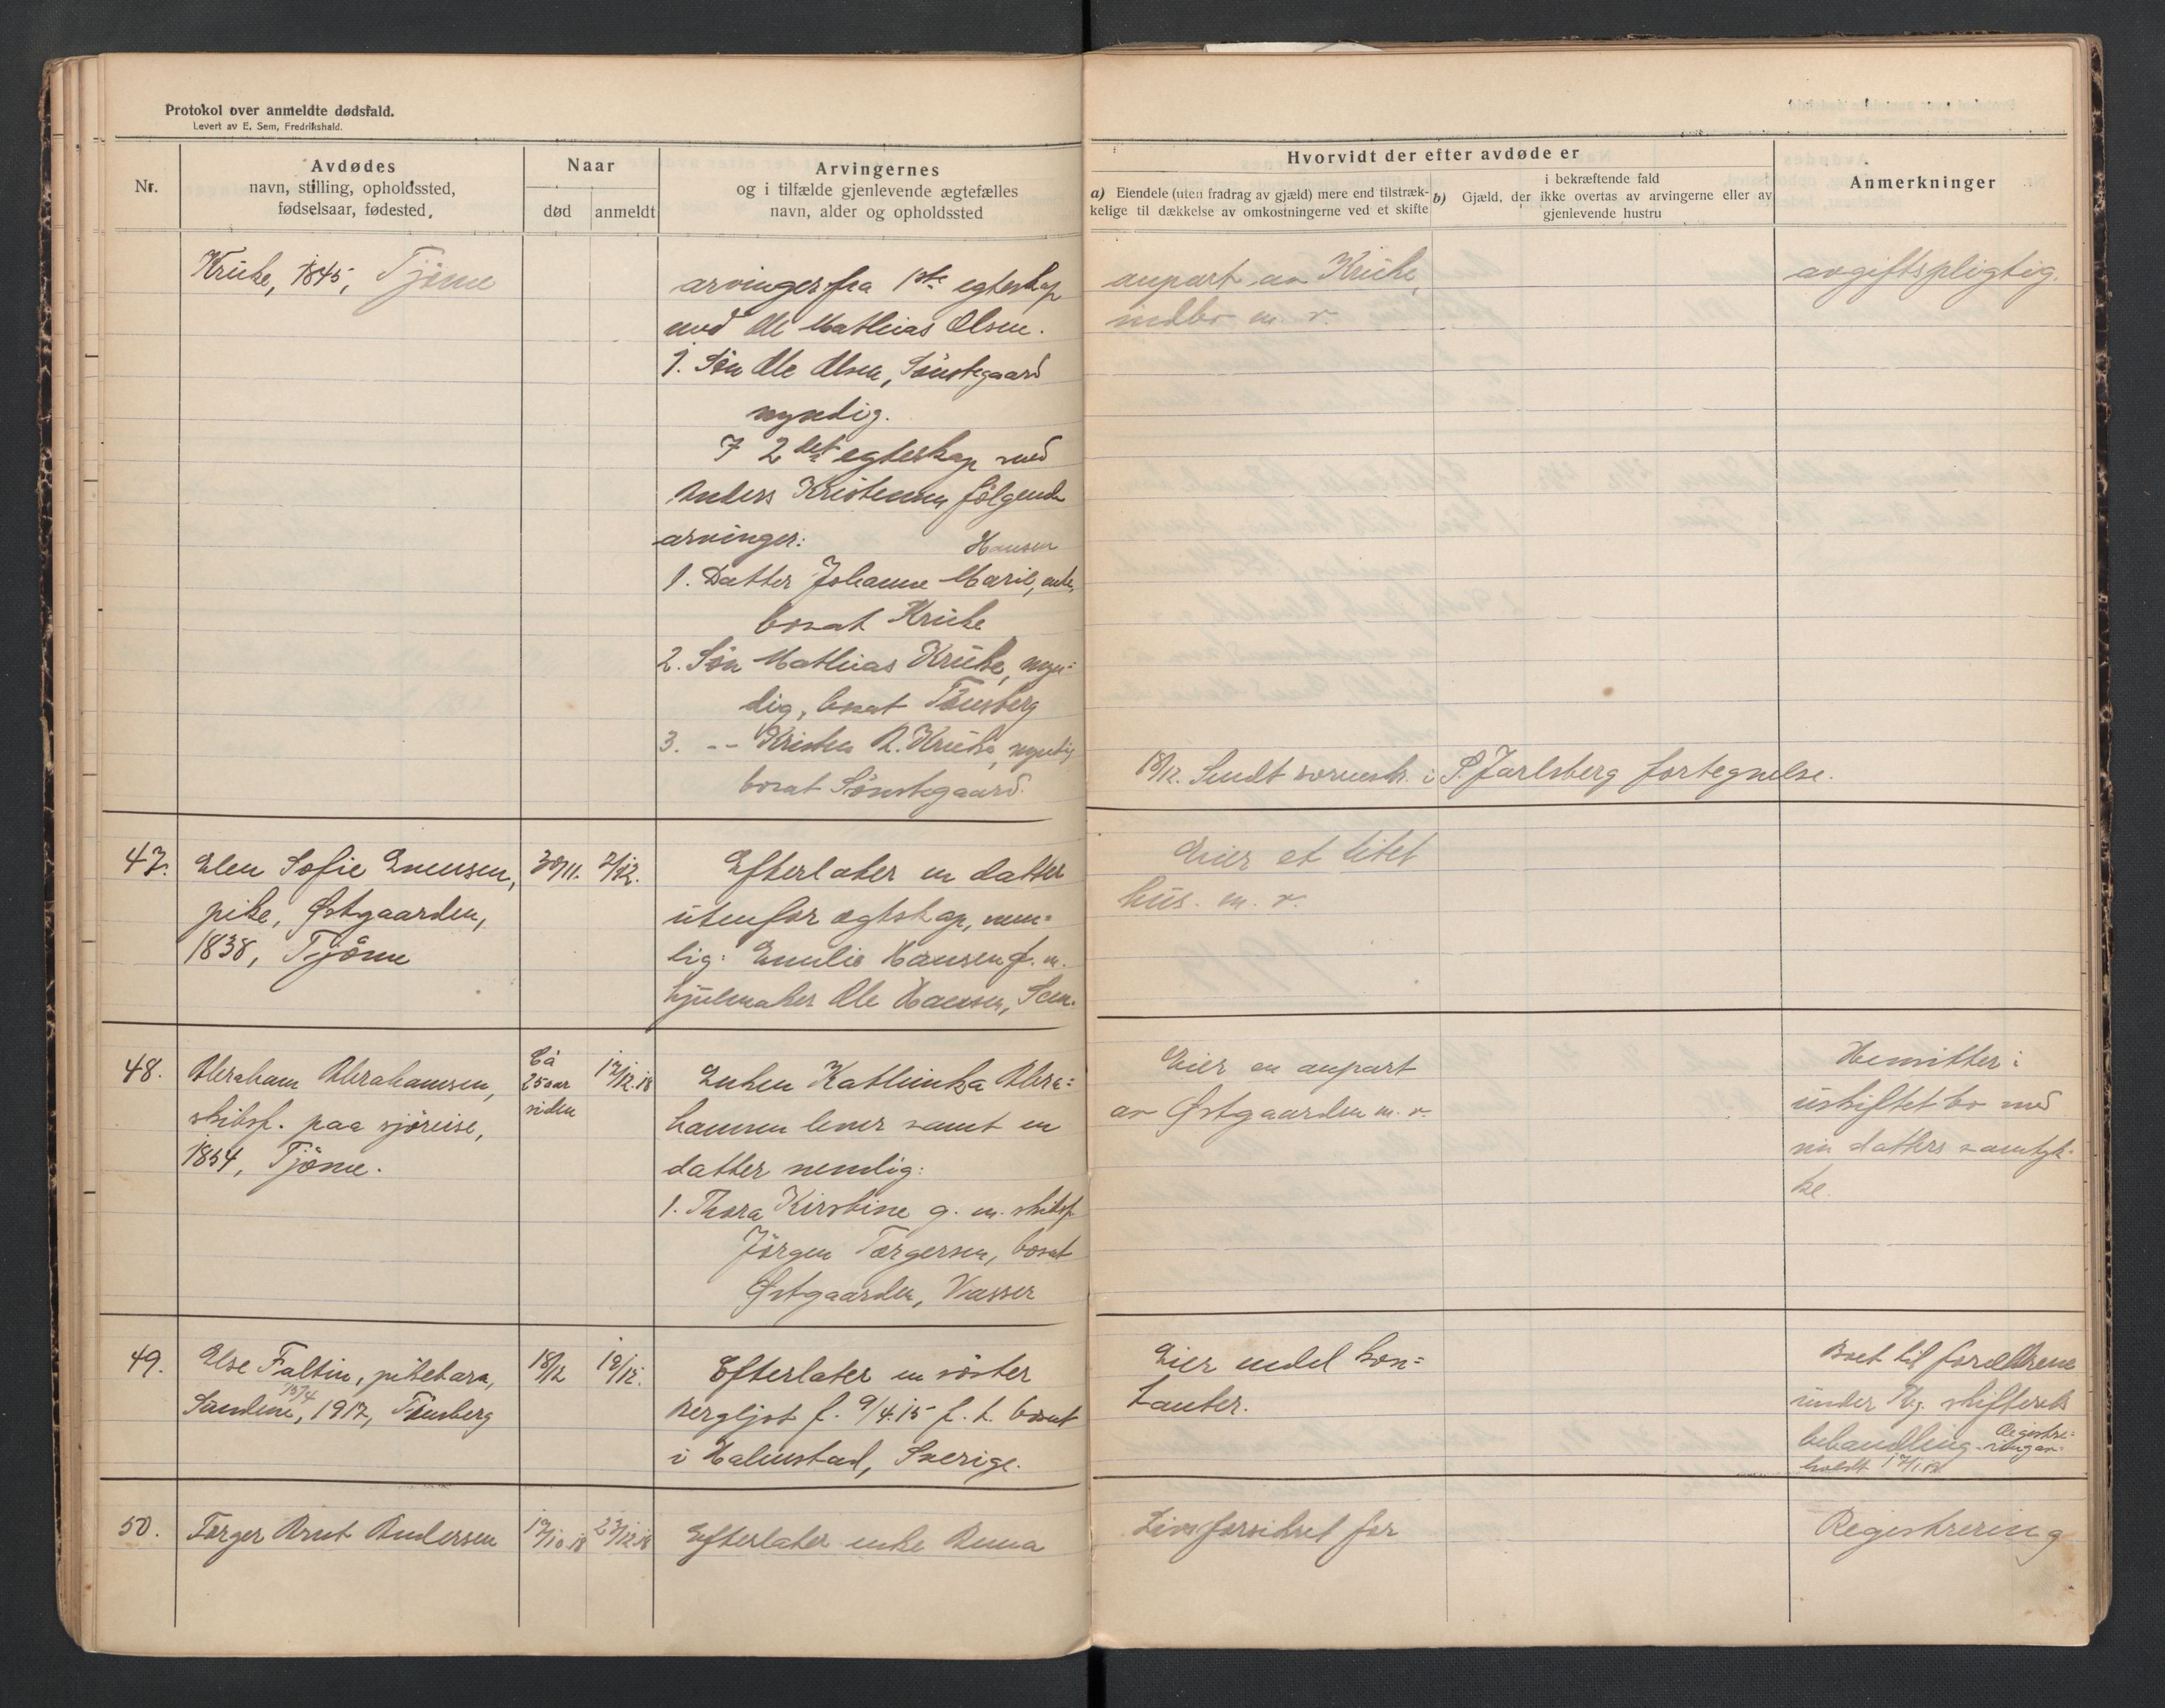 Protokol over anmeldte dødsfald.
Levert av E. Sem, Fredrikshald.
Nr.
Avdødes
navn, stilling, opholdssted,
fødselsaar, fødested,
Naar
død
anmeldt
Arvingernes
og i tilfælde gjenlevende ægtefælles
navn, alder og opholdssted
Hvorvidt der efter avdøde er
a) Eiendele (uten fradrag av gjæld) mere end tilstræk-
kelige til dækkelse av omkostningerne ved et skifte
i bekræftende fald
b) Gjæld, der ikke overtas av arvingerne eller av
gjenlevende hustru
Anmerkninger
Kruke, 1845, Tjøme
arvinger fra 1ste egteskap
med Ole Mathias Olsen.
1. Søn Ole Olsen, Sønstegaard
myndig.
I 2det egteskap med
Anders Kristensen følgende
arvinger:
Hansen
1. Datter Johanne Marie, enke,
bosat Kruke
2. Søn Mathias Kruke, myn=
dig, bosat Tønsberg
3. -- Kristen A. Kruke, myndig
bosat Sønstegaard.
anpart av Kruke,
indbo m. v.
avgiftspligtig.
18/12. Sendt sorenskr. i S. Jarlsberg fortegnelse.
47.
Elen Sofie Enersen,
pike, Østgaarden,
1838, Tjöme
30/11.
2/12.
Efterlater en datter
utenfor ægtskap, nem=
lig: Emilie Hansen g. m.
hjulmaker Ole Hansen, Sem.
Eier et litet
hus. m. v.
48.
Abraham Abrahamsen,
skibsf. paa sjöreise,
1854, Tjöme.
Ca
25 aar
siden
12/12.18
Enken Kathinka Abra=
hamsen lever samt en
datter nemlig:
1. Thora Kirstine g. m. skibsf.
Jörgen Torgersen, bosat
Østgaarden, Vasser
Eier en anpart
av Østgaarden m. v.
Hensitter i
uskiftet bo med
sin datters samtyk-
ke.
49.
Else Faltin, pikebarn,
Sandene, 15/4 1917, Tönsberg
18/12
19/12.
Efterlater en söster
Bergljot f. 9/4.15 f. t. bosat
i Halmstad, Sverige.
Eier endel kon=
tanter.
Boet til forældrene
under Tbg. skifterets
behandling. Registre=
ring av=
holdt
50.
Torger Arnt Andersen
19/10.18
23/12.18
Efterlater enke Anna
Livsforsikret for
Registrering